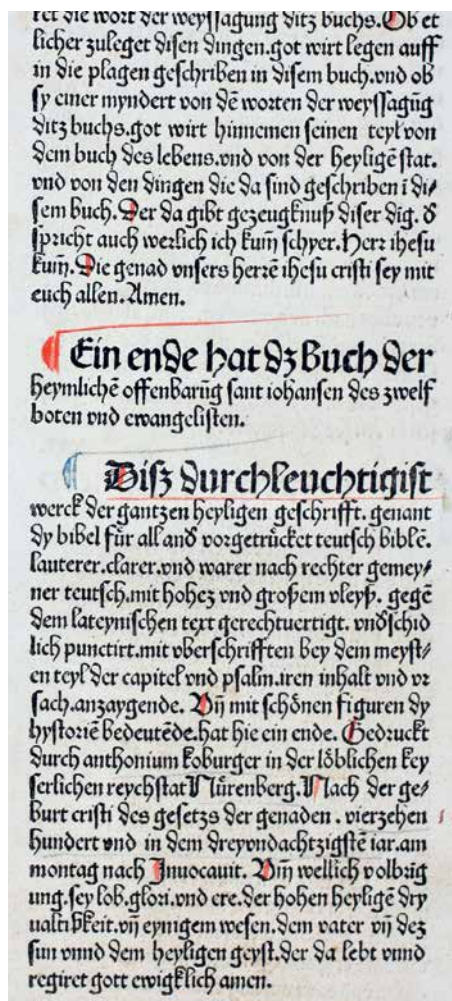 ret die wort der weyssagung ditz buchs. Ob et
licher zuleget disen dingen. got wirt legen auff
in die plagen geschriben in disem buch. vnd ob
sy einer myndert von dē worten der weyssagūg
ditz buchs. got wirt hinnemen seinen teyl von
dem buch des lebens. vnd von der heyligē stat.
vnd von den dingen die da sind geschriben ī di⸗
sem buch. Der da gibt gezeugknuß diser dīg. ð
spricht auch werlich ich kum̄ schyer. Herr ihesu
kum̄. Die genad vnsers herrē ihesu cristi sey mit
euch allen. Amen.
Ein ende hat dz Buch der
heymlichē offenbarūg sant iohansen des zwelf
boten vnd ewangelisten.
Disz durchleuchtigist
werck der gantzen heyligen geschrifft. genant
dy bibel für all and̄ vorgetrücket teutsch biblē.
lauterer. clarer. vnd warer nach rechter gemey⸗
ner teutsch. mit hohez vnd großem vleyß. gegē
dem lateynischen text gerechtuertigt. vnðschid
lich punctirt. mit vberschrifften bey dem meyst⸗
en teyl der capitel vnd psalm. iren inhalt vnd vr
sach. anzaygende. Vn̄ mit schönen figuren dy
hystoriē bedeutēde. hat hie ein ende. Gedruckt
durch anthonium koburger in der löblichen key
serlichen reychstat Nürenberg. Nach der ge⸗
burt cristi des gesetzs der genaden. vierzehen
hundert vnd in dem dreyvndachtzigstē iar. am
montag nach Inuocauit. Vm̄ wellich volbrīg
ung. sey lob. glori. vnd ere. der hohen heyligē dry
ualtigkeit. vn̄ eynigem wesen. dem vater vn̄ dez
sun vnnd dem heyligen geyst. der da lebt vnnd
regiret gott ewigklich amen.